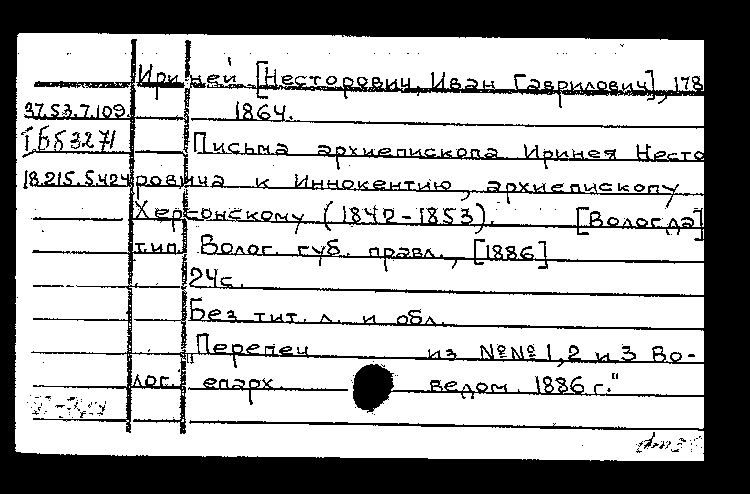 Ириней [Несторович, Иван Гаврилович], 178
37.53.7.109. 1864.
ІБ53271 Письма архиепископа Иринея Несто
18.215.5.424 ровича к Иннокентию, архиепископу
Херсонскому (1842-1853). [Вологда]
тип. Волог. губ. правл., [1886]
24с.
Без тит. л. и обл.
"Перепеч из №№ 1,2 и 3 Во-
лог. епарх. ведом. 1886 г."